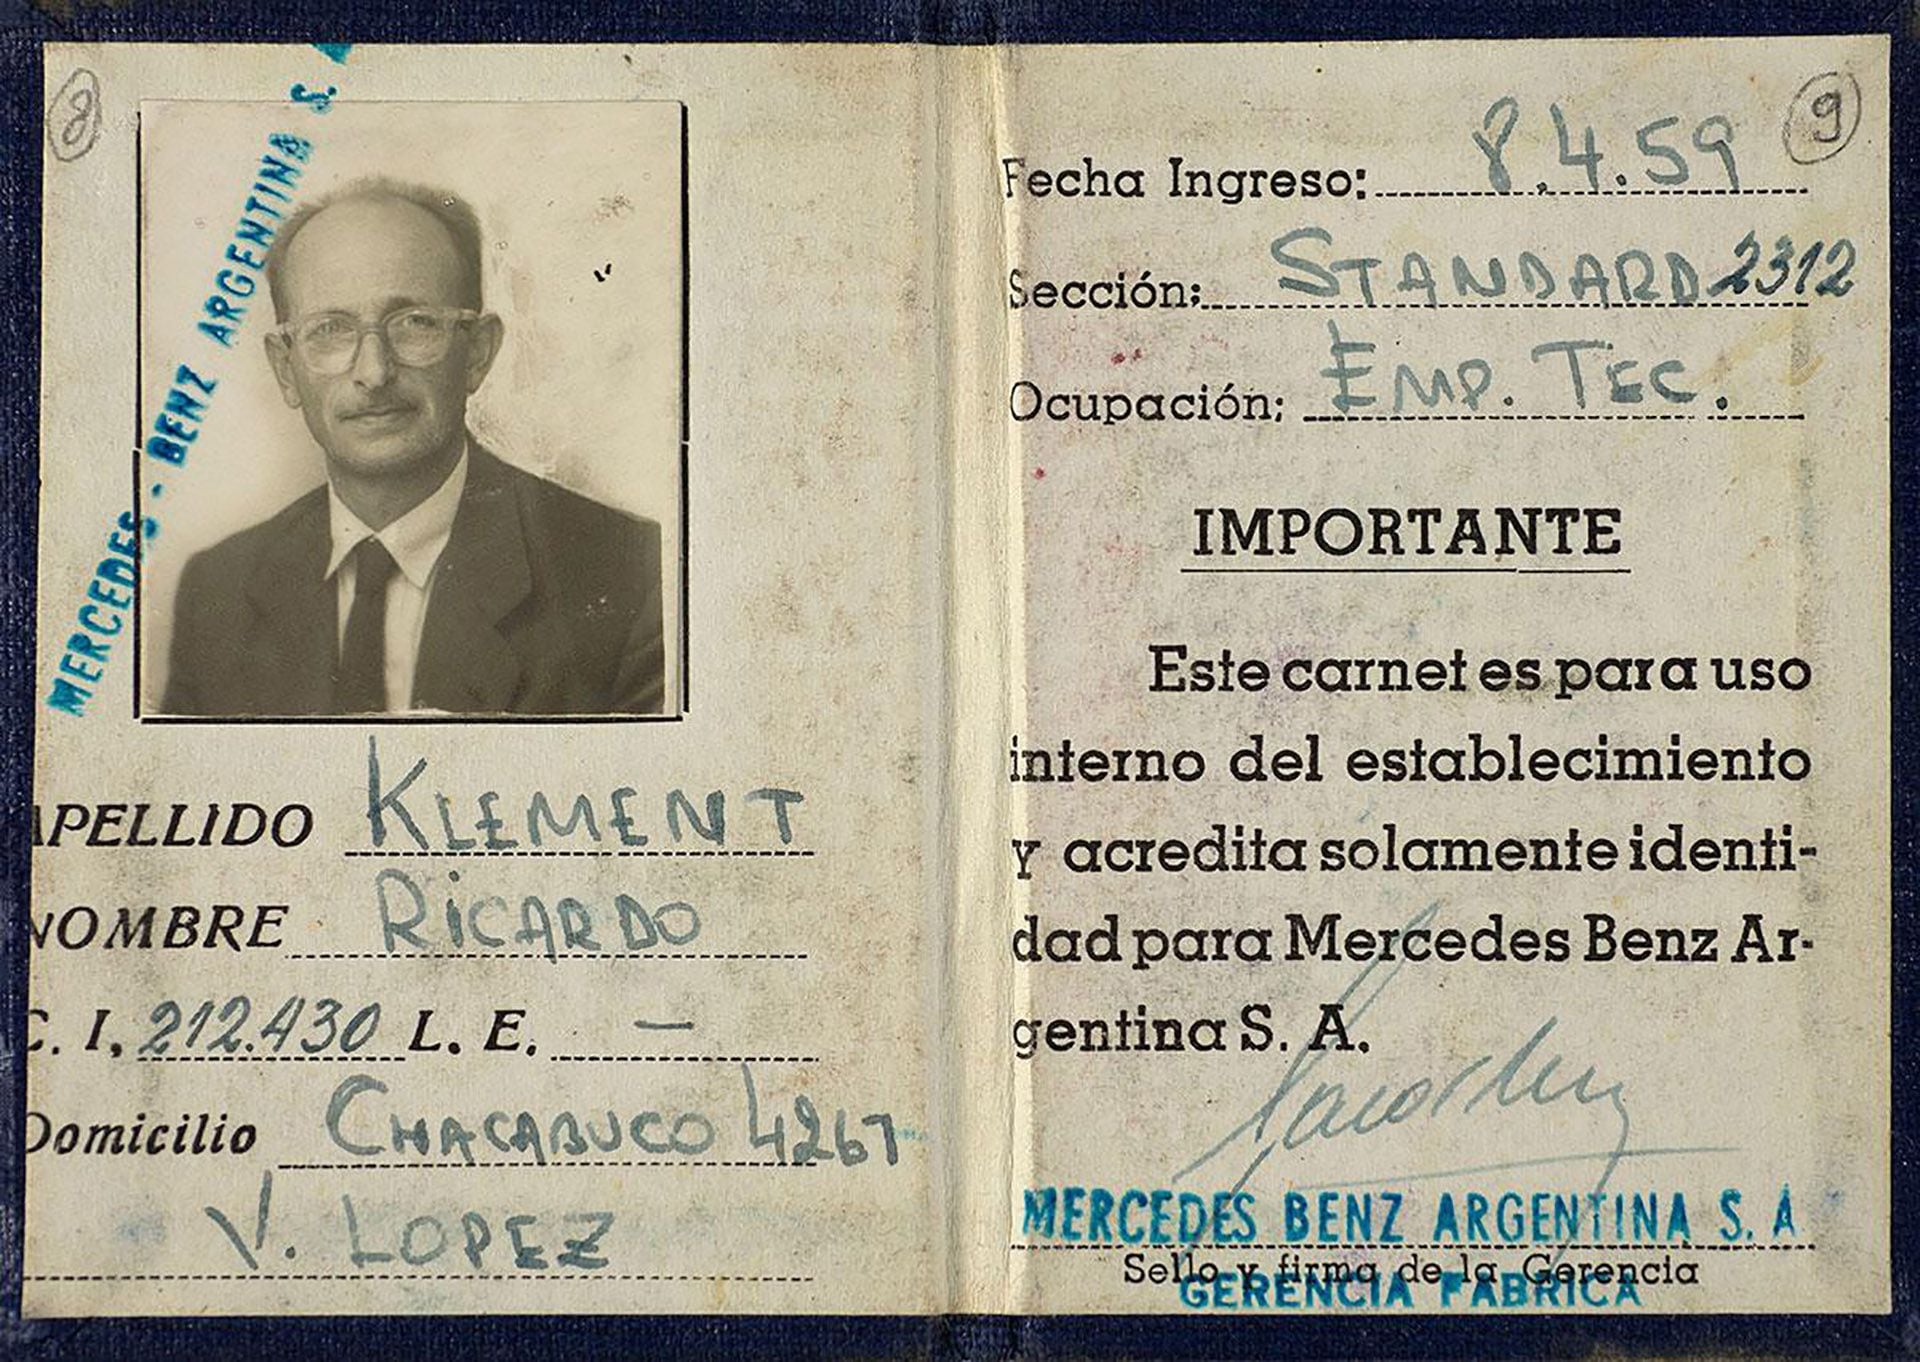 8
MERCEDES - BENZ ARGENTINA S. A
APELLIDO KLEMENT
NOMBRE RICARDO
C. I, 212.430 L. E. —
Domicilio CHACABUCO 4267
V. LOPEZ
9
Fecha Ingreso: 8.4.59
Sección: STANDARD 2312
Ocupación: EMP. TEC.
IMPORTANTE
Este carnet es para uso
interno del establecimiento
y acredita solamente identi-
dad para Mercedes Benz Ar-
gentina S. A.
MERCEDES BENZ ARGENTINA S. A
Sello y firma de la Gerencia
GERENCIA FABRICA